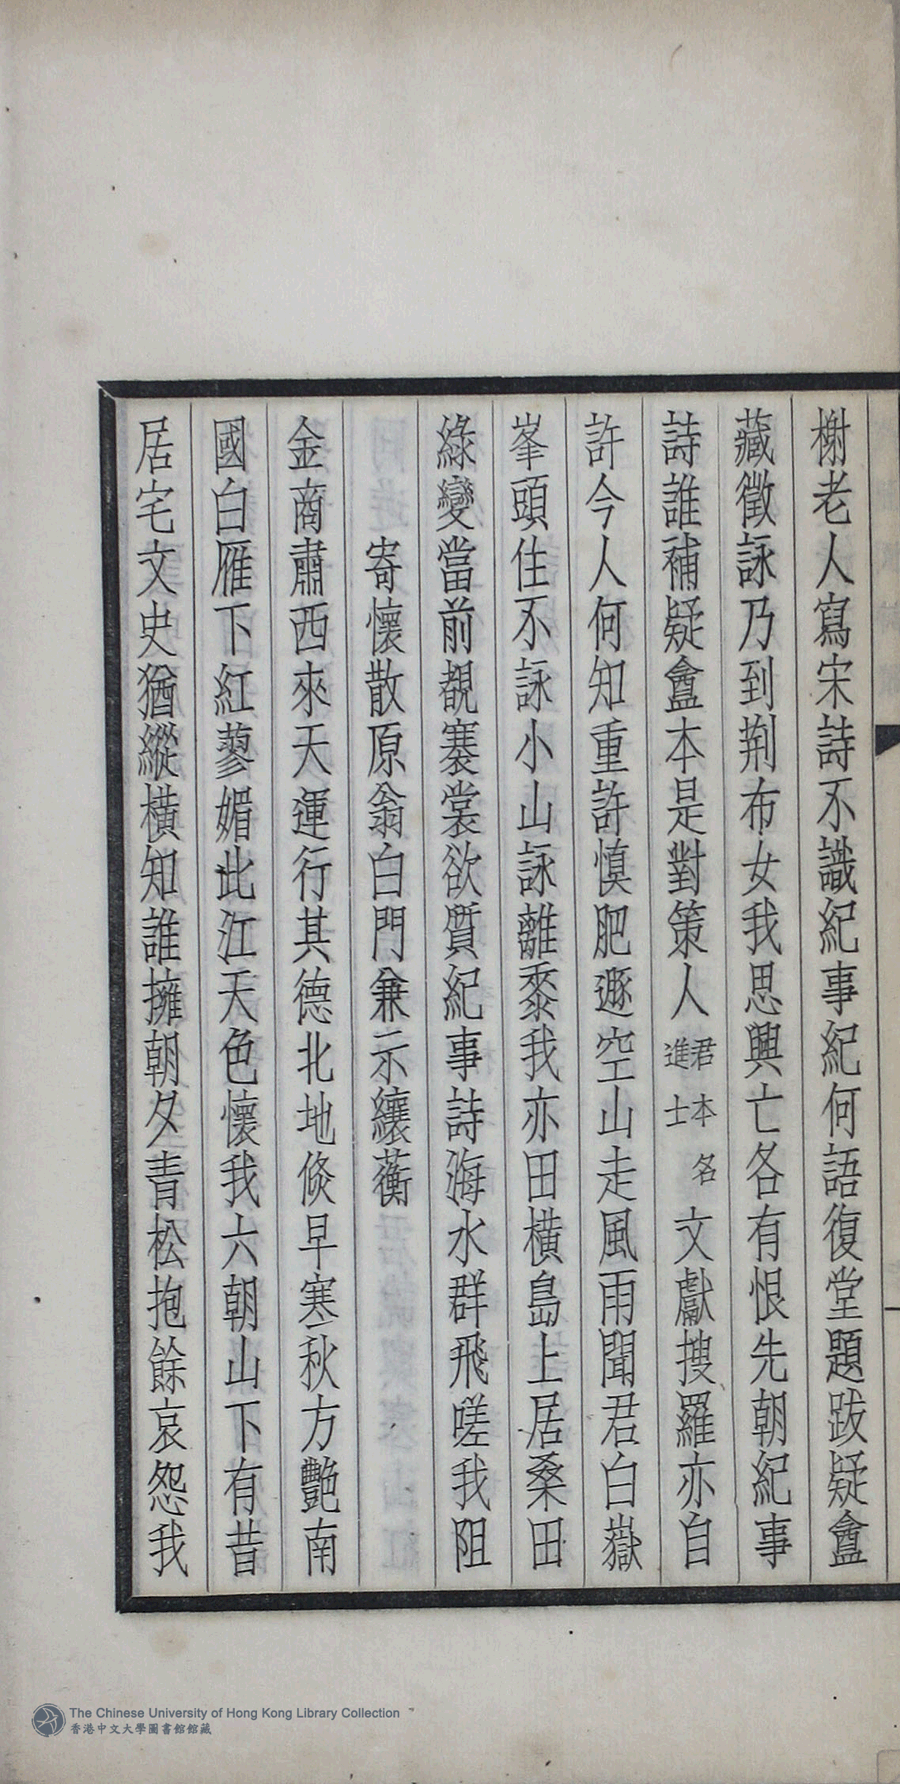 榭老人寫宋詩不識紀事紀何語復堂題跋疑盦
藏徵詠乃到荆布女我思興亡各有恨先朝紀事
詩誰補疑盦本是對策人君本名進士文獻搜羅亦自
許今人何知重許慎肥遯空山走風雨聞君白嶽
峯頭住不詠小山詠離黍我亦田橫島上居桑田
綠變當前覩褰裳欲質紀事詩海水群飛嗟我阻
寄懷散原翁白門兼示纕蘅
金商肅西來天運行其德北地倐早寒秋方艷南
國白雁下紅蓼媚此江天色懷我六朝山下有昔
居宅文史猶縱橫知誰擁朝夕青松抱餘哀怨我
The Chinese University of Hong Kong Library Collection
香港中文大學圖書館館藏